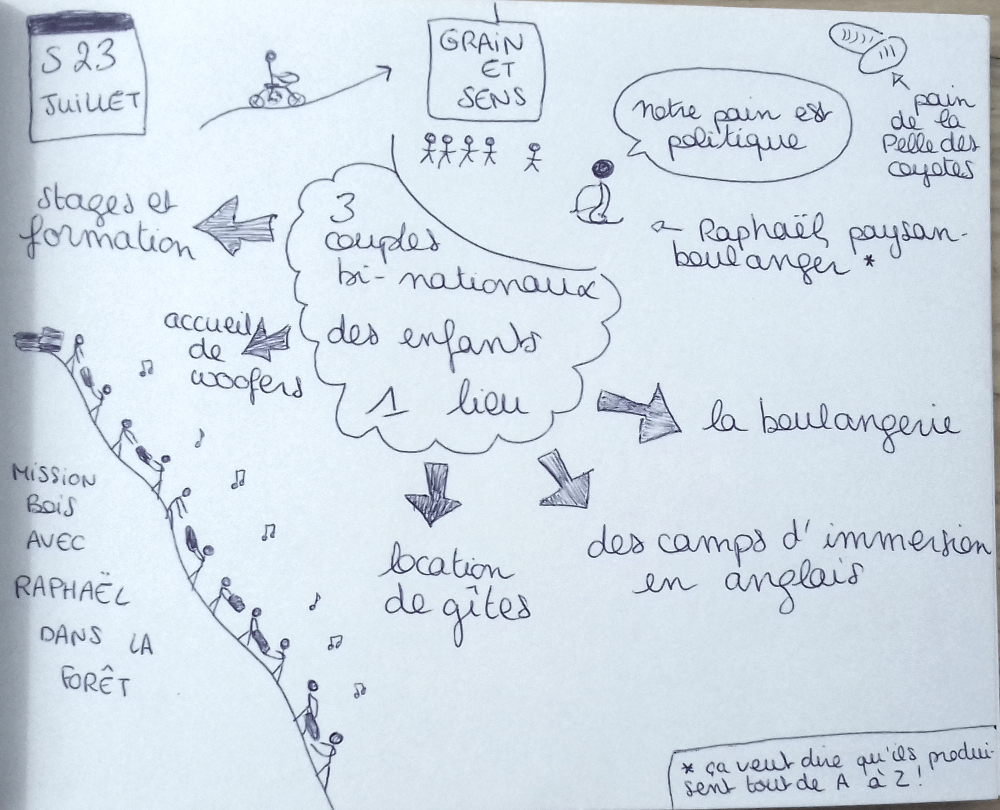 S 23
JUILLET
GRAIN
ET
SENS
notre pain est
politique
pain
de la
Pelle des
coyotes
Raphaël paysan-
boulanger *
stages et
formation
3
couples
bi-nationaux
des enfants
1 lieu
accueil
de
woofers
la boulangerie
location
de gîtes
des camps d'immersion
en anglais
MISSION
BOIS
AVEC
RAPHAËL
DANS LA
FORÊT
* ça veut dire qu'ils produi-
sent tout de A à Z !